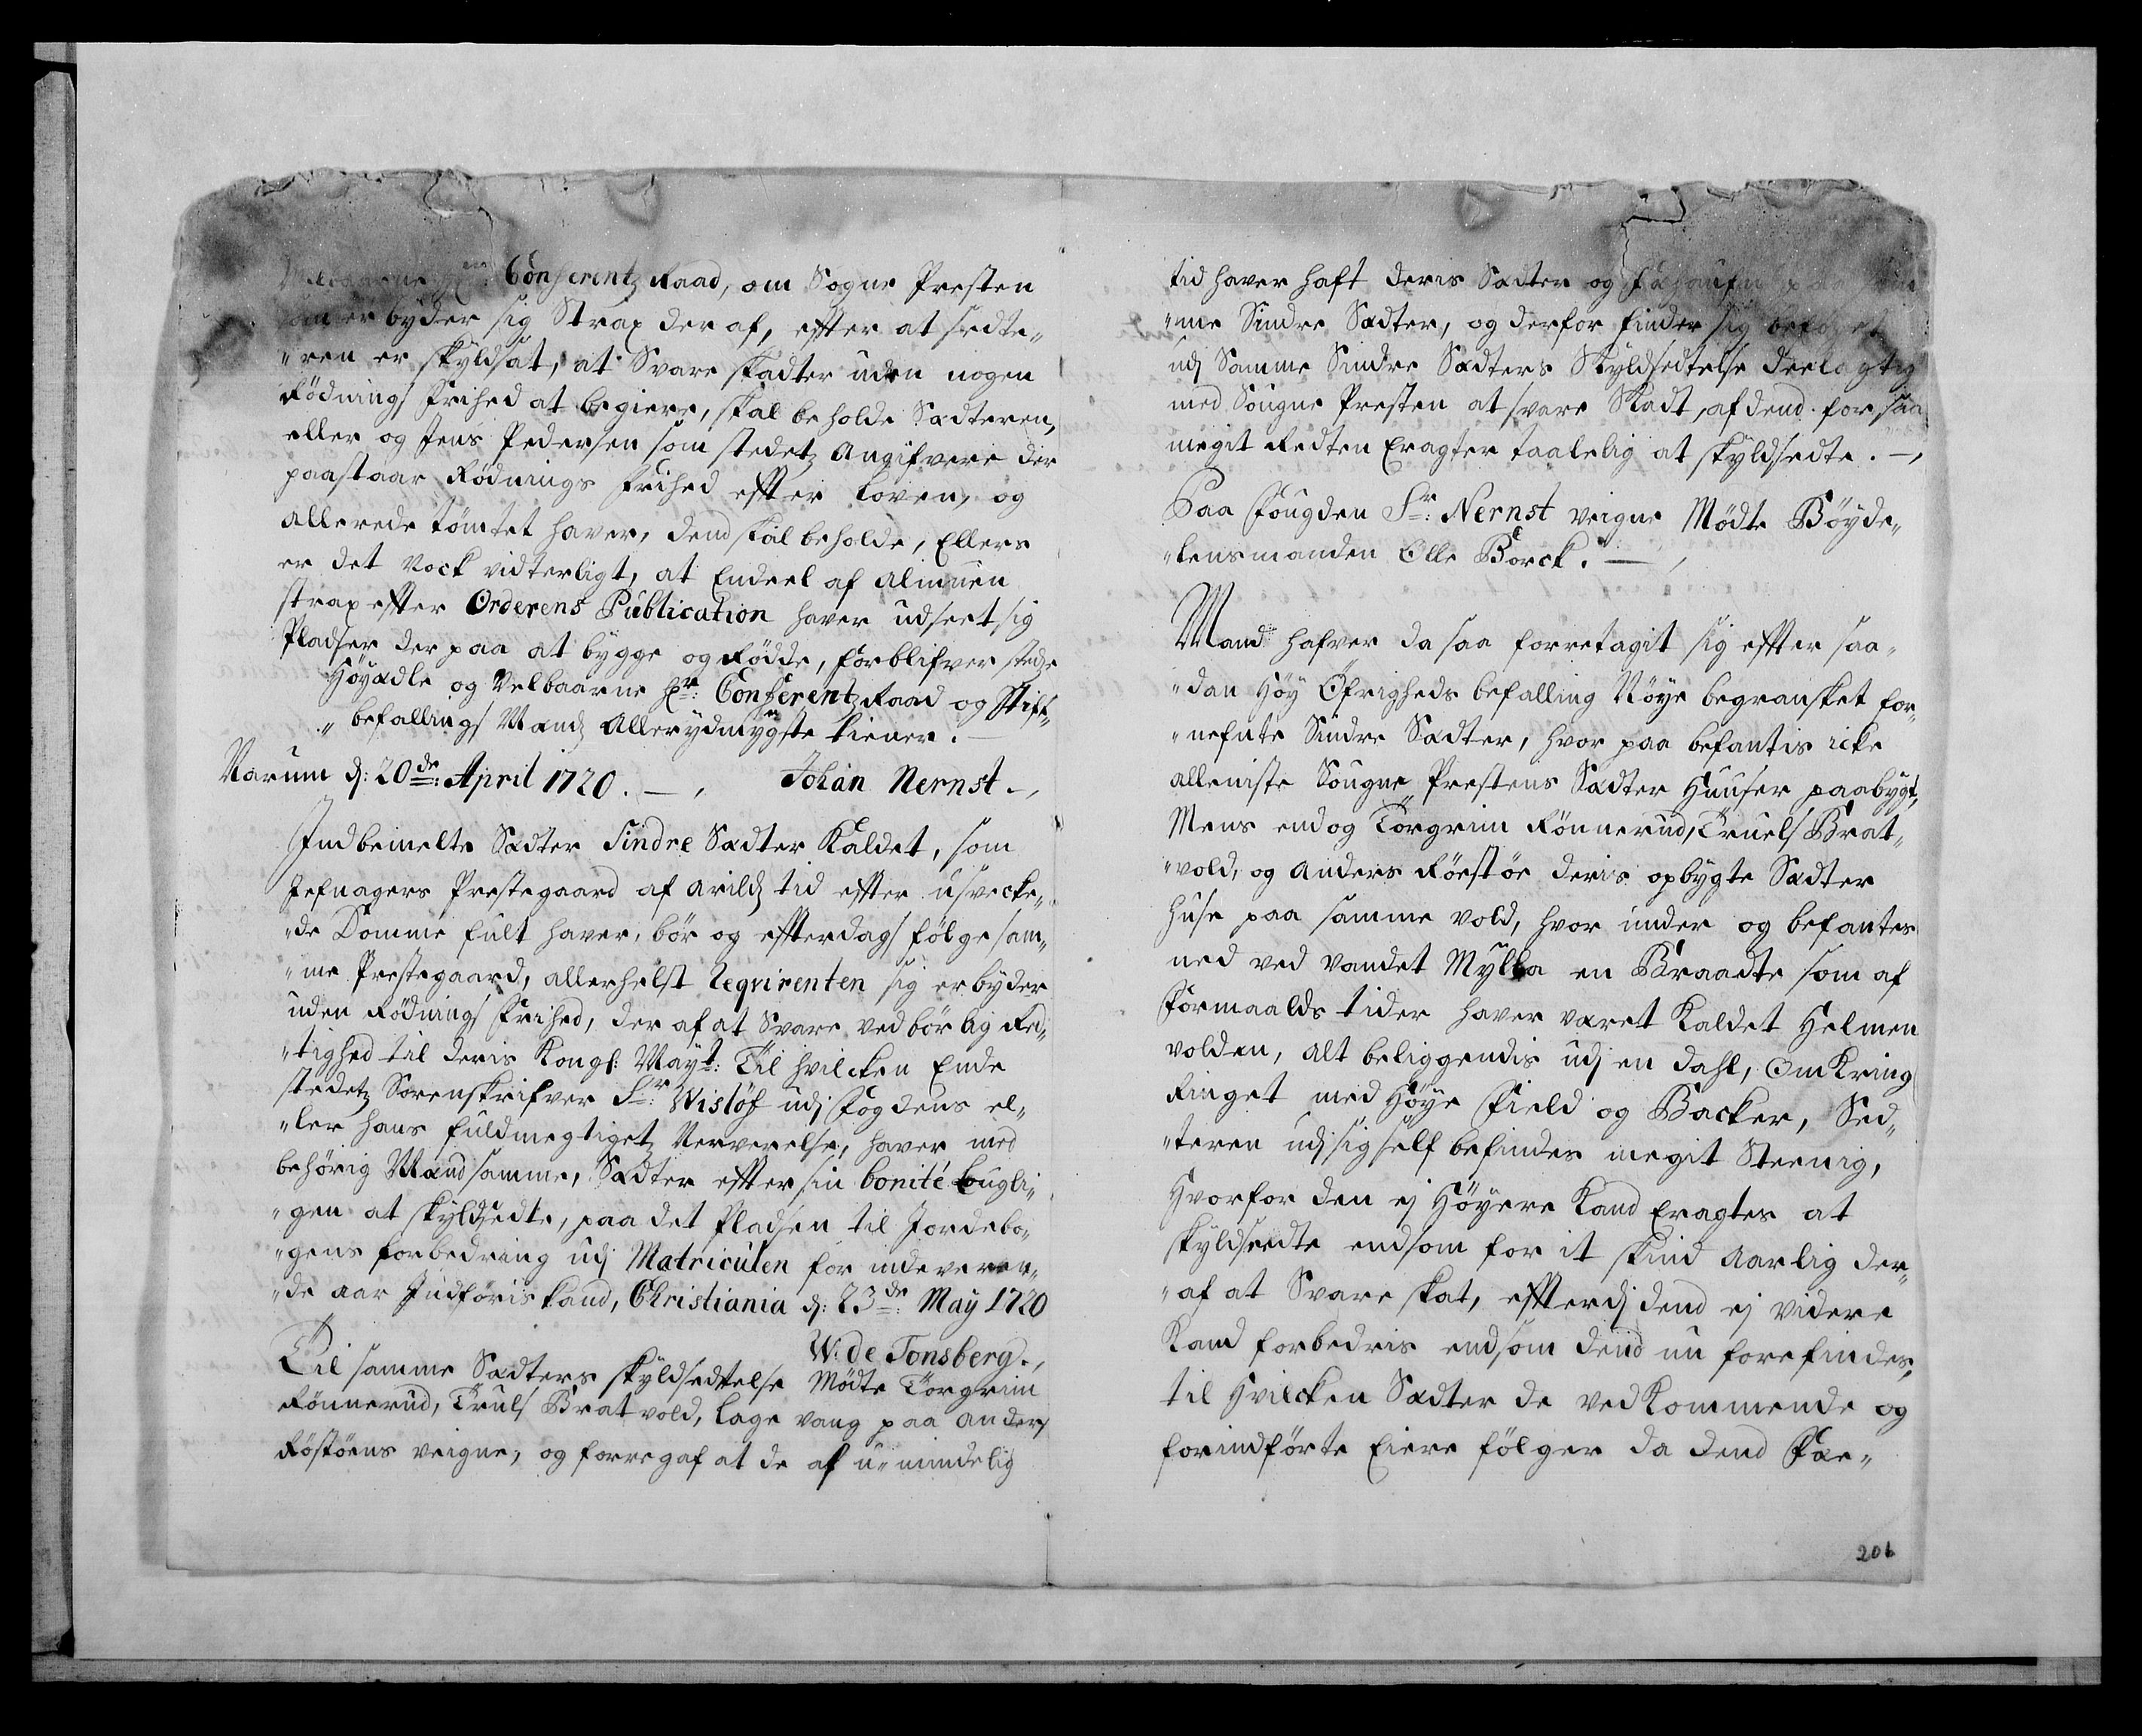 Velbaarne Hr: Conferentz Raad, om Sogne Presten
som er byder sig Strax der af, effter at sedte„
„ren er skyldsat, at Svare skadter uden nogen
Rödnings frihed at begiere, skal beholde Sædteren,
eller og Jens Pedersen som stedetz Angifvere der
paastaar Rödnings frihed effter Loven, og
allerede tömtet haver, dend skal beholde, Ellers
er det Nock vidterligt, at Endeel af almuen
strax effter Orderens Publication haver udseet sig
Pladser der paa at bygge og Rödde, forblifver stedze
Höyædle og Velbaarne Hr: Conferentz Raad og Stift„
„befallings Mands Allerydmygste tiener.
Narum d: 20de: April 1720. — , Johan Nernst. ,
Indbemelte Sædter Sindre Sædter Kaldet, som
Jefnagers Prestegaard af arilds tid effter usvecke„
„de Domme fult haver, bör og effterdags fölge sam„
„me Prestegaard, allerhelst Reqvirenten sig erbyder
uden Rödnings Frihed, der af at Svare ved börlig Red„
„tighed til deris Kongl: Mayt: Til hvilcken Ende
stedetz Sorenskrifver Sr: Wislöf udj Fogdens el„
„ler hans fuldmegtiges Nerverelse, haver med
behörig Mænd samme, Sædter effter sin bonité Lougli„
„gen at skyldsedte, paa det Pladsen til Jordebo„
„gens forbedring udj Matriculen for indeveren„
„de aar Indföris kand, Christiania d: 23de: May 1720
W: de Tonsberg. ,
Til samme Sædters skyldsedtelse Mödte Torgrim
Rönnerud, Truls Bratvold, Lage vang paa anders
Röstöens veigne, og forregaf at de af u„mindelig
tid haver haft deris Sædter og fæhaufn paa sam
„me Sindre Sædter, og derfor finder sig beföyet
udj Samme Sindre Sædters Skyldsedtelse deelagtig
med Sougne Presten at svare Skadt, af dend for saa
megit Redten Eragter taalelig at skyldsedte. — ,
Paa Fougden Sr: Nernst veigne Mödte Böyde„
„lensmanden Olle Borck. — ,
Mand hafver da saa forretagit sig effter saa„
„dan Höy Öfrigheds befalling Nöye begransket for„
„nefnte Sindre Sædter, hvor paa befantis icke
alleniste Sougne Prestens Sædter Huuser paabygt,
Mens endog Torgrim Rönnerud, Truels Brat„
„vold, og Anders Röestöe deris opbygte Sædter
huse paa samme vold, hvor under og befantes
ned ved vandet Mylla en Braadte som af
Formaalds tider haver været Kaldet Helmen
volden, alt beliggendis udj en dahl, OmKring
Ringet med Höye Field og Backer, Sed„
„teren udj sig self befindes megit Steenig,
Hvorfor den ej Höyere Kand Eragtes at
skyldsedte endsom for it skind Aarlig der„
„af at Svare skat, effterdj dend ej videre
Kand forbedris endsom dend nu forefindes,
til Hvilcken Sædter de ved Kommende og
forindförte Eiere fölger da dend Fæe„
206